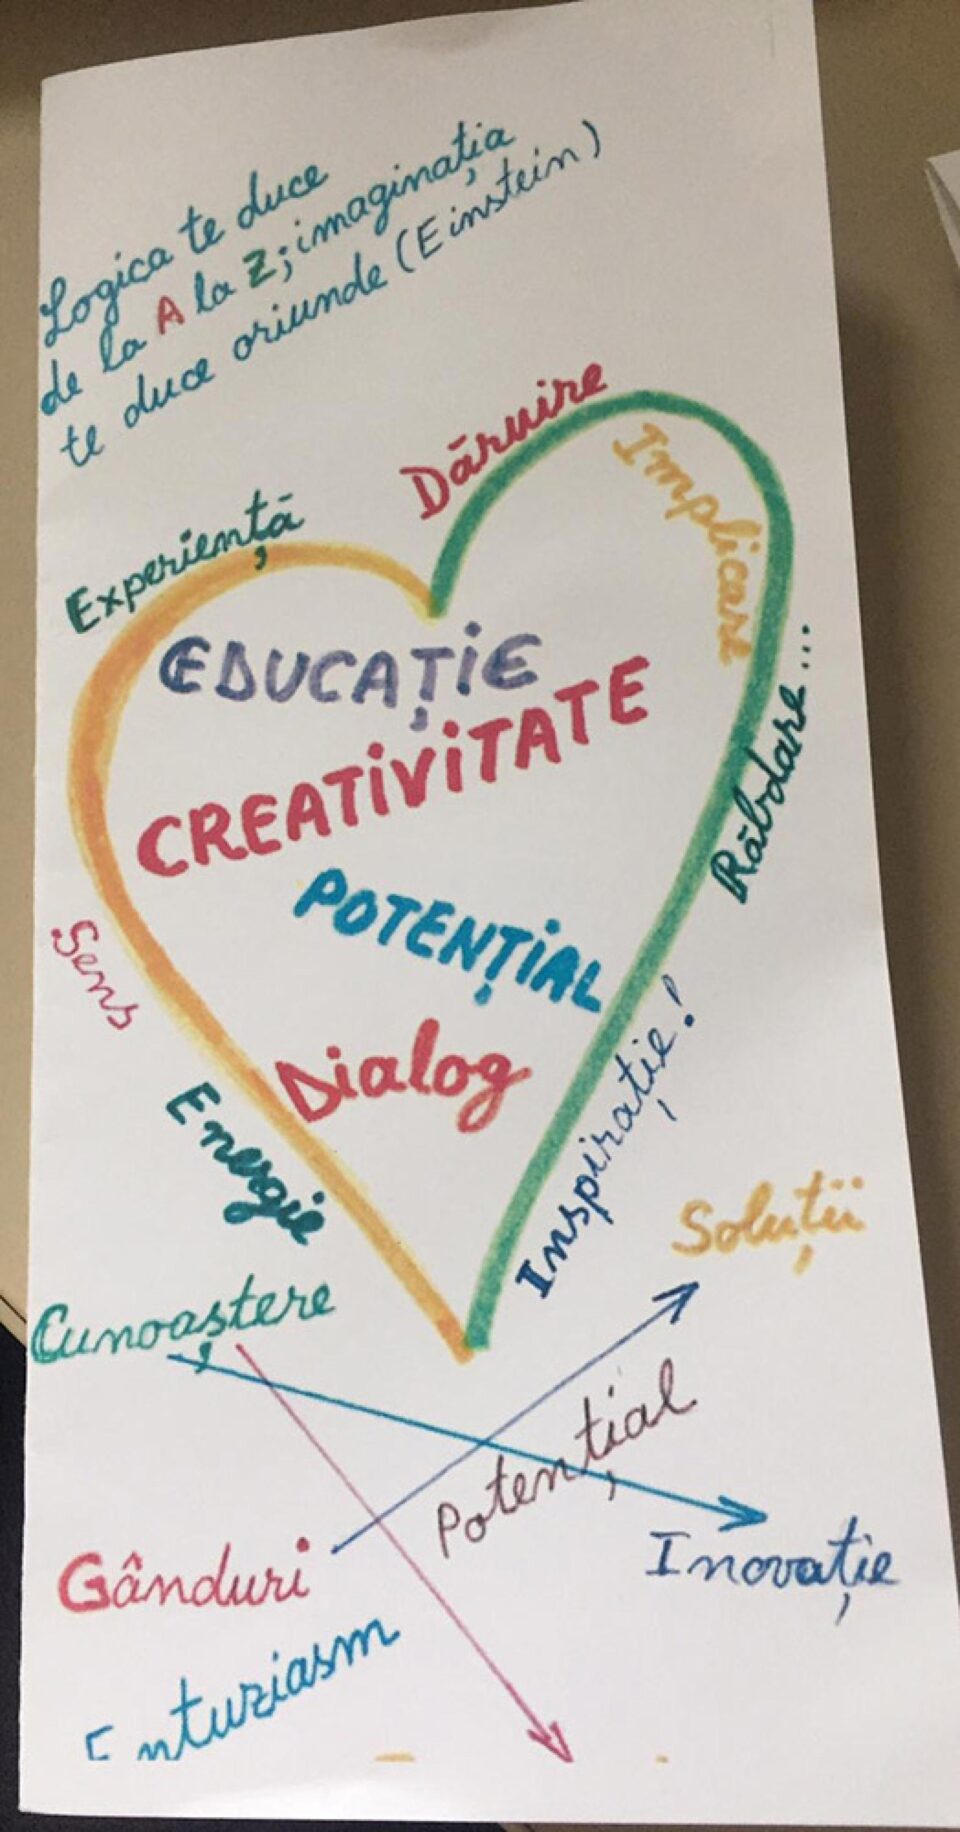 Logica te duce
de la A la Z; imaginația
te duce oriunde (Einstein)
Dăruire
Implicare
Experiență
EDUCAȚIE
CREATIVITATE
Răbdare...
POTENȚIAL
Sens
Dialog
Inspirație!
Energie
Soluții
Cunoaștere
Potențial
Inovație
Gânduri
Enturiasm